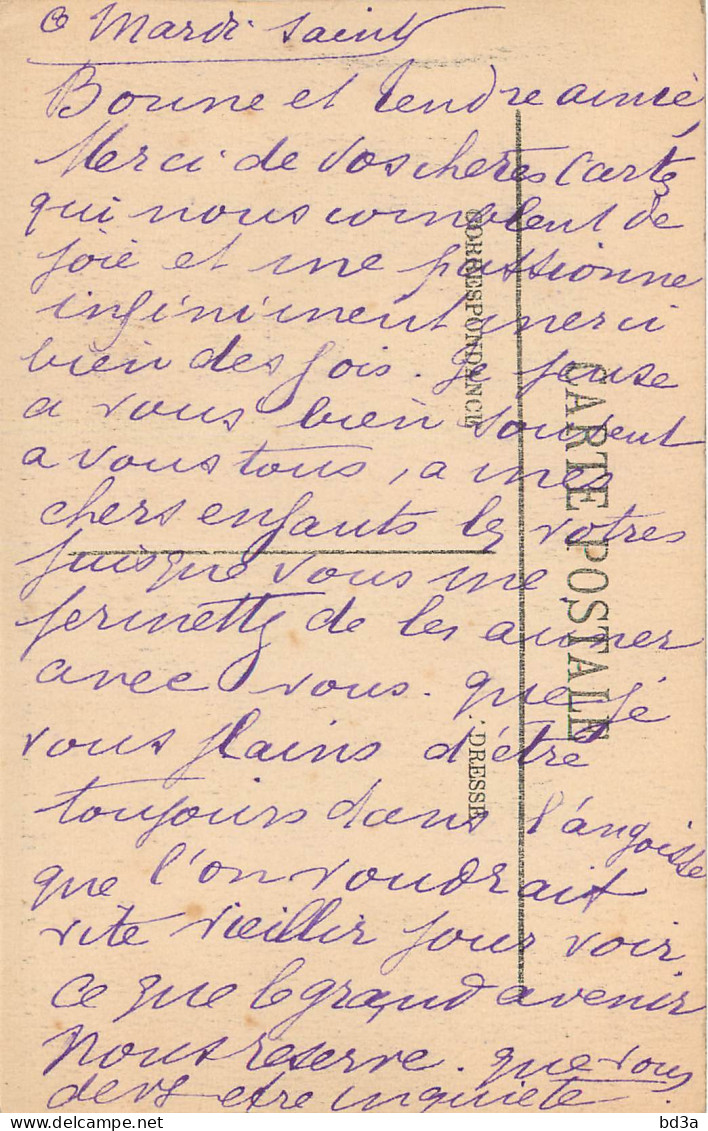 Ce Mardi Saint
Bonne et tendre aimée,
Merci de vos chères Cartes
qui nous comblent de
joie et me passionne
infiniment merci
bien des fois. Je pense
a vous bien souvent
a vous tous, a mes
chers enfants les votres
puisque vous me
permettes de les aimer
avec vous. que je
vous plains d'être
toujours dans l'angoisse
que l'on voudrait
vite vieillir pour voir
ce que le grand avenir
nous reserve. que vous
devs etre inquiète.
CARTE POSTALE
CORRESPONDANCE
DRESSE
delcampe.net
bd3a